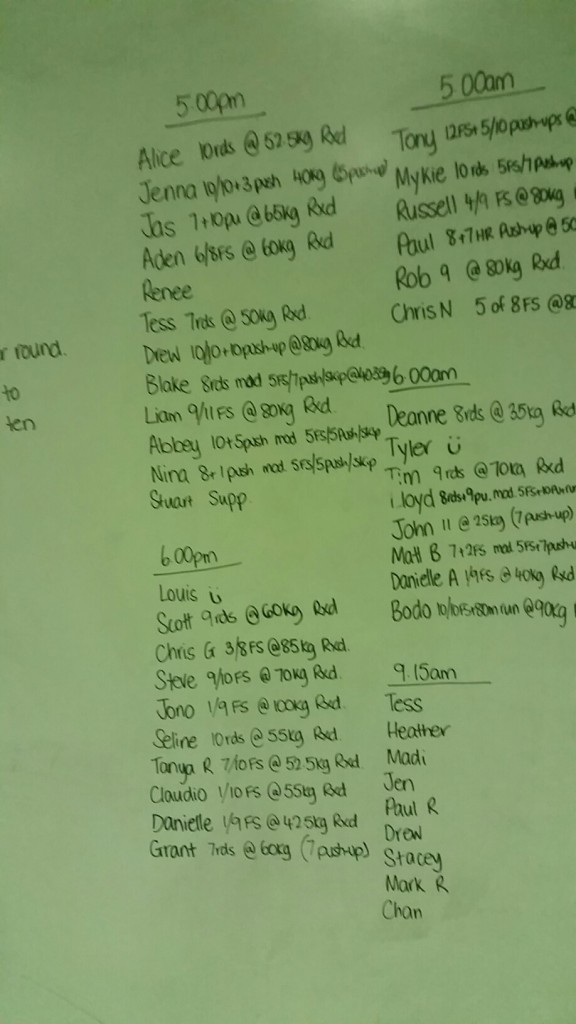 r round.
to
ten
5:00pm
Alice 10rds @ 52.5kg Rxd
Jenna 10/10+3push 40kg (5pushup)
Jas 7+10pu @ 65kg Rxd
Aden 6/8FS @ 60kg Rxd
Renee
Tess 7rds @ 50kg Rxd.
Drew 10/10+10push-up @80kg Rxd.
Blake 8rds mod 5FS/7push/skip@40
Liam 9/11FS @ 80kg Rxd.
Abbey 10+5push mod 5FS/5Push/skip
Nina 8+1push mod. 5FS/5push/skip
Stuart Supp.
6:00pm
Louis ü
Scott 9rds @60kg Rxd
Chris G 3/8FS @85kg Rxd.
Steve 9/10FS @ 70kg Rxd.
Jono 1/9FS @ 100kg Rxd.
Seline 10rds @ 55kg Rxd.
Tanya R 7/10FS @ 52.5kg Rxd
Claudio 1/10FS @ 55kg Rxd
Danielle 1/9FS @ 42.5kg Rxd
Grant 7rds @ 60kg (7pushup)
5:00am
Tony 12FS+5/10push-ups @
Mykie 10rds 5FS/7pushup
Russell 4/9 FS @ 80kg
Paul 8+7HR Push-up @ 50
Rob 9 @ 80kg Rxd.
Chris N 5 of 8FS @80
6:00am
Deanne 8rds @ 35kg Rxd
Tyler ü
Tim 9rds @ 70kg Rxd
Lloyd 8rds+9pu. mod. 5FS+10Pu+run
John 11 @ 25kg (7push-up)
Matt B 7+2FS mod 5FS+7push-u
Danielle A 1/9FS @ 40kg Rxd
Bodo 10/10FS+80m run @90kg
9.15am
Tess
Heather
Madi
Jen
Paul R
Drew
Stacey
Mark R
Chan